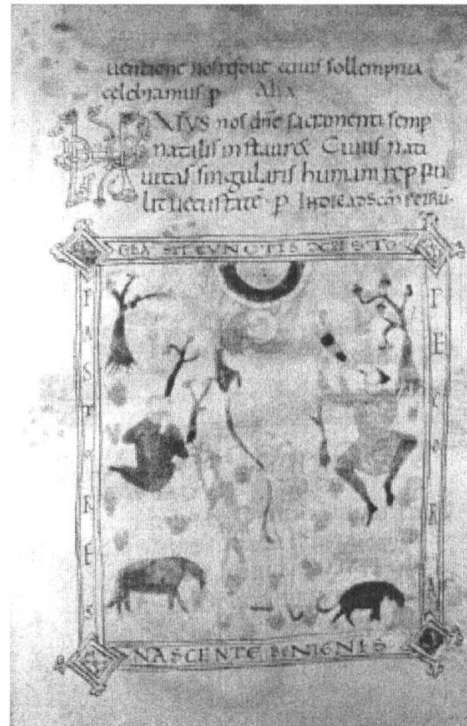 uentione nos refoue cuius sollempnia
celebramus p Alia
nos dne sacramenti semp
natalis instauret Cuius nati
uitas singularis humanā reppu
lit uetustatē p IN DIE AD SCM PETRU
SIT CUNCTIS
PASTORES
NASCENTE BENIGNIS